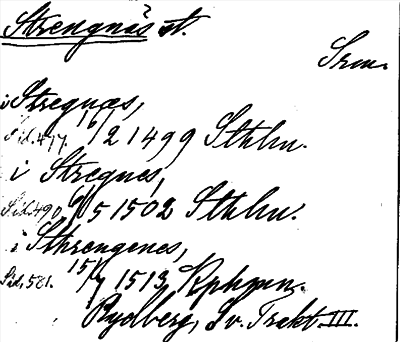 Strengnäs st.
Srm.
i Stregnæs,
Sid. 477. 16/2 1499 Sthlm.
i Stregnes,
Sid. 490, 6/5 1502 Sthlm.
i Sthrengenes,
Sid. 581. 15/7 1513, Kphmn.
Rydberg, Sv. Trakt. III.